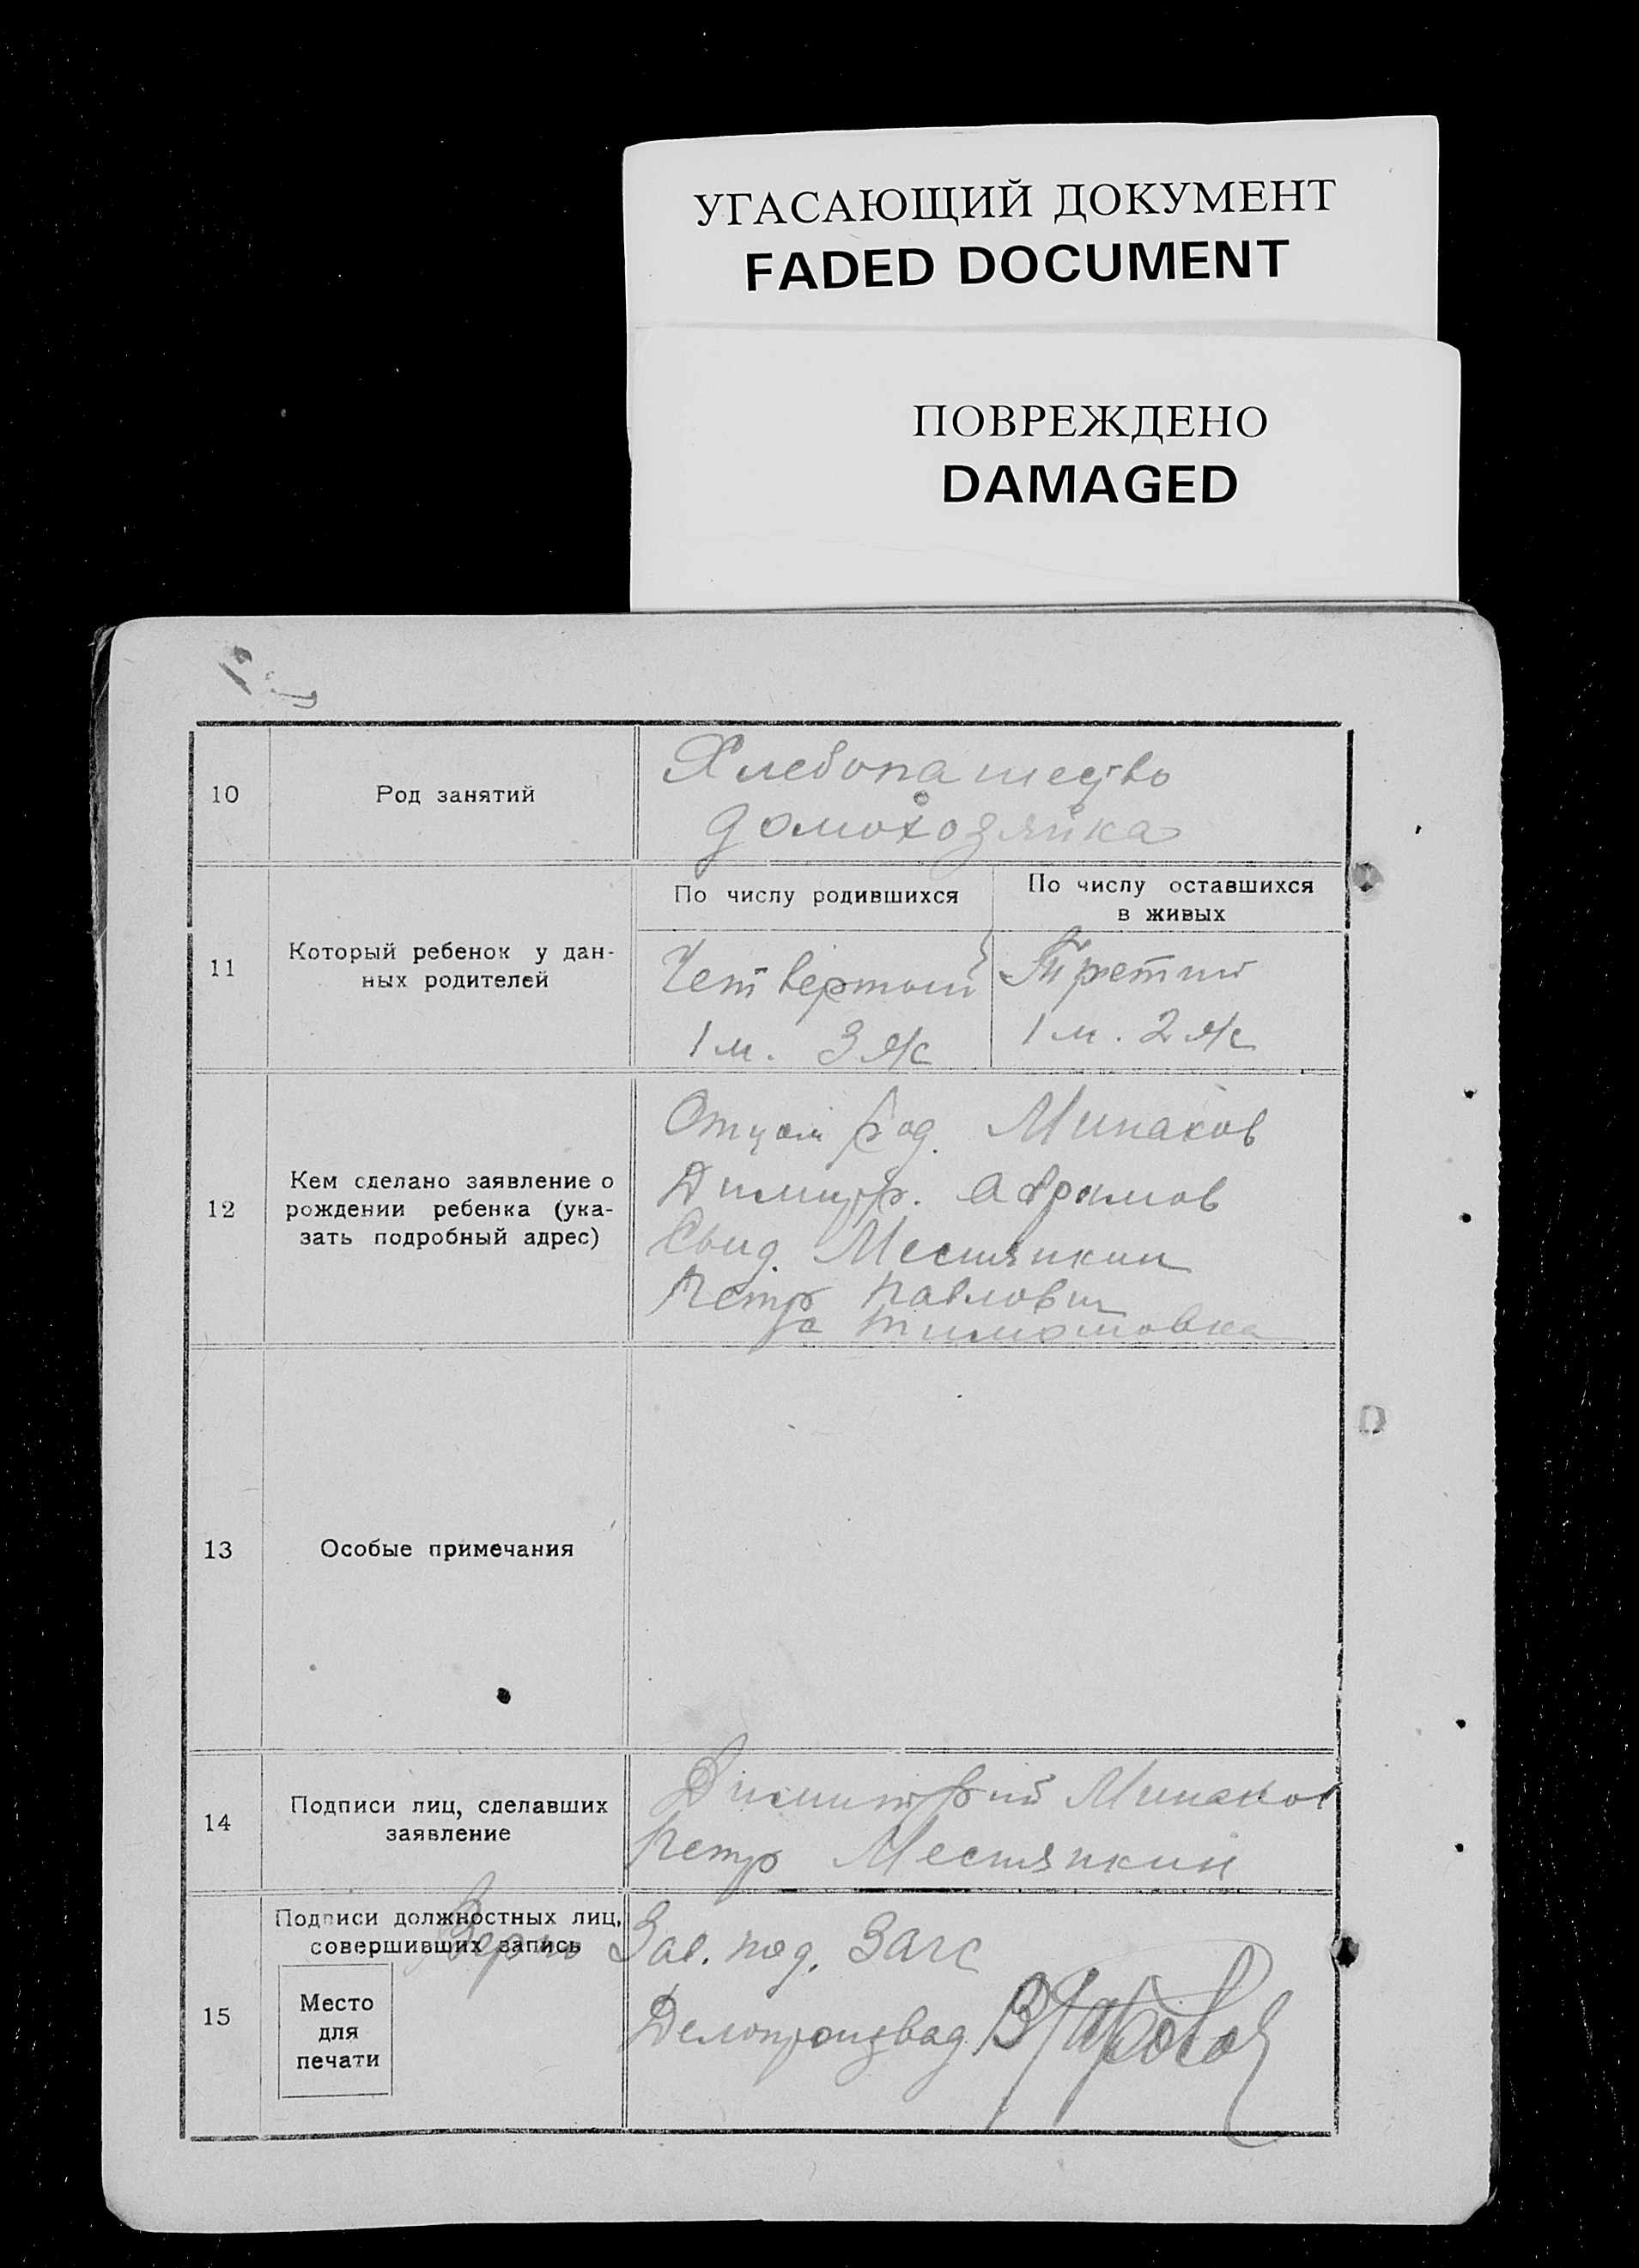 УГАСАЮЩИЙ ДОКУМЕНТ
FADED DOCUMENT
ПОВРЕЖДЕНО
DAMAGED
10
Род занятий
Хлебопашество
домохозяйка
11
Который ребенок у дан-
ных родителей
По числу родившихся
Четвертый
1 м. 3 ж
По числу оставшихся
в живых
Третий
1 м. 2 ж
12
Кем сделано заявление о
рождении ребенка (ука-
зать подробный адрес)
Отцом род. Минаков
Димитр. Аврамов
Свид. Местяпкин
Петр Павлович
с Тимошовка
13
Особые примечания
14
Подписи лиц, сделавших
заявление
Димитрий Минаков
Петр Местяпкин
15
Подписи должностных лиц,
совершивших запись
Место
для
печати
Верно Зав. под. Загс
Делопроизвод